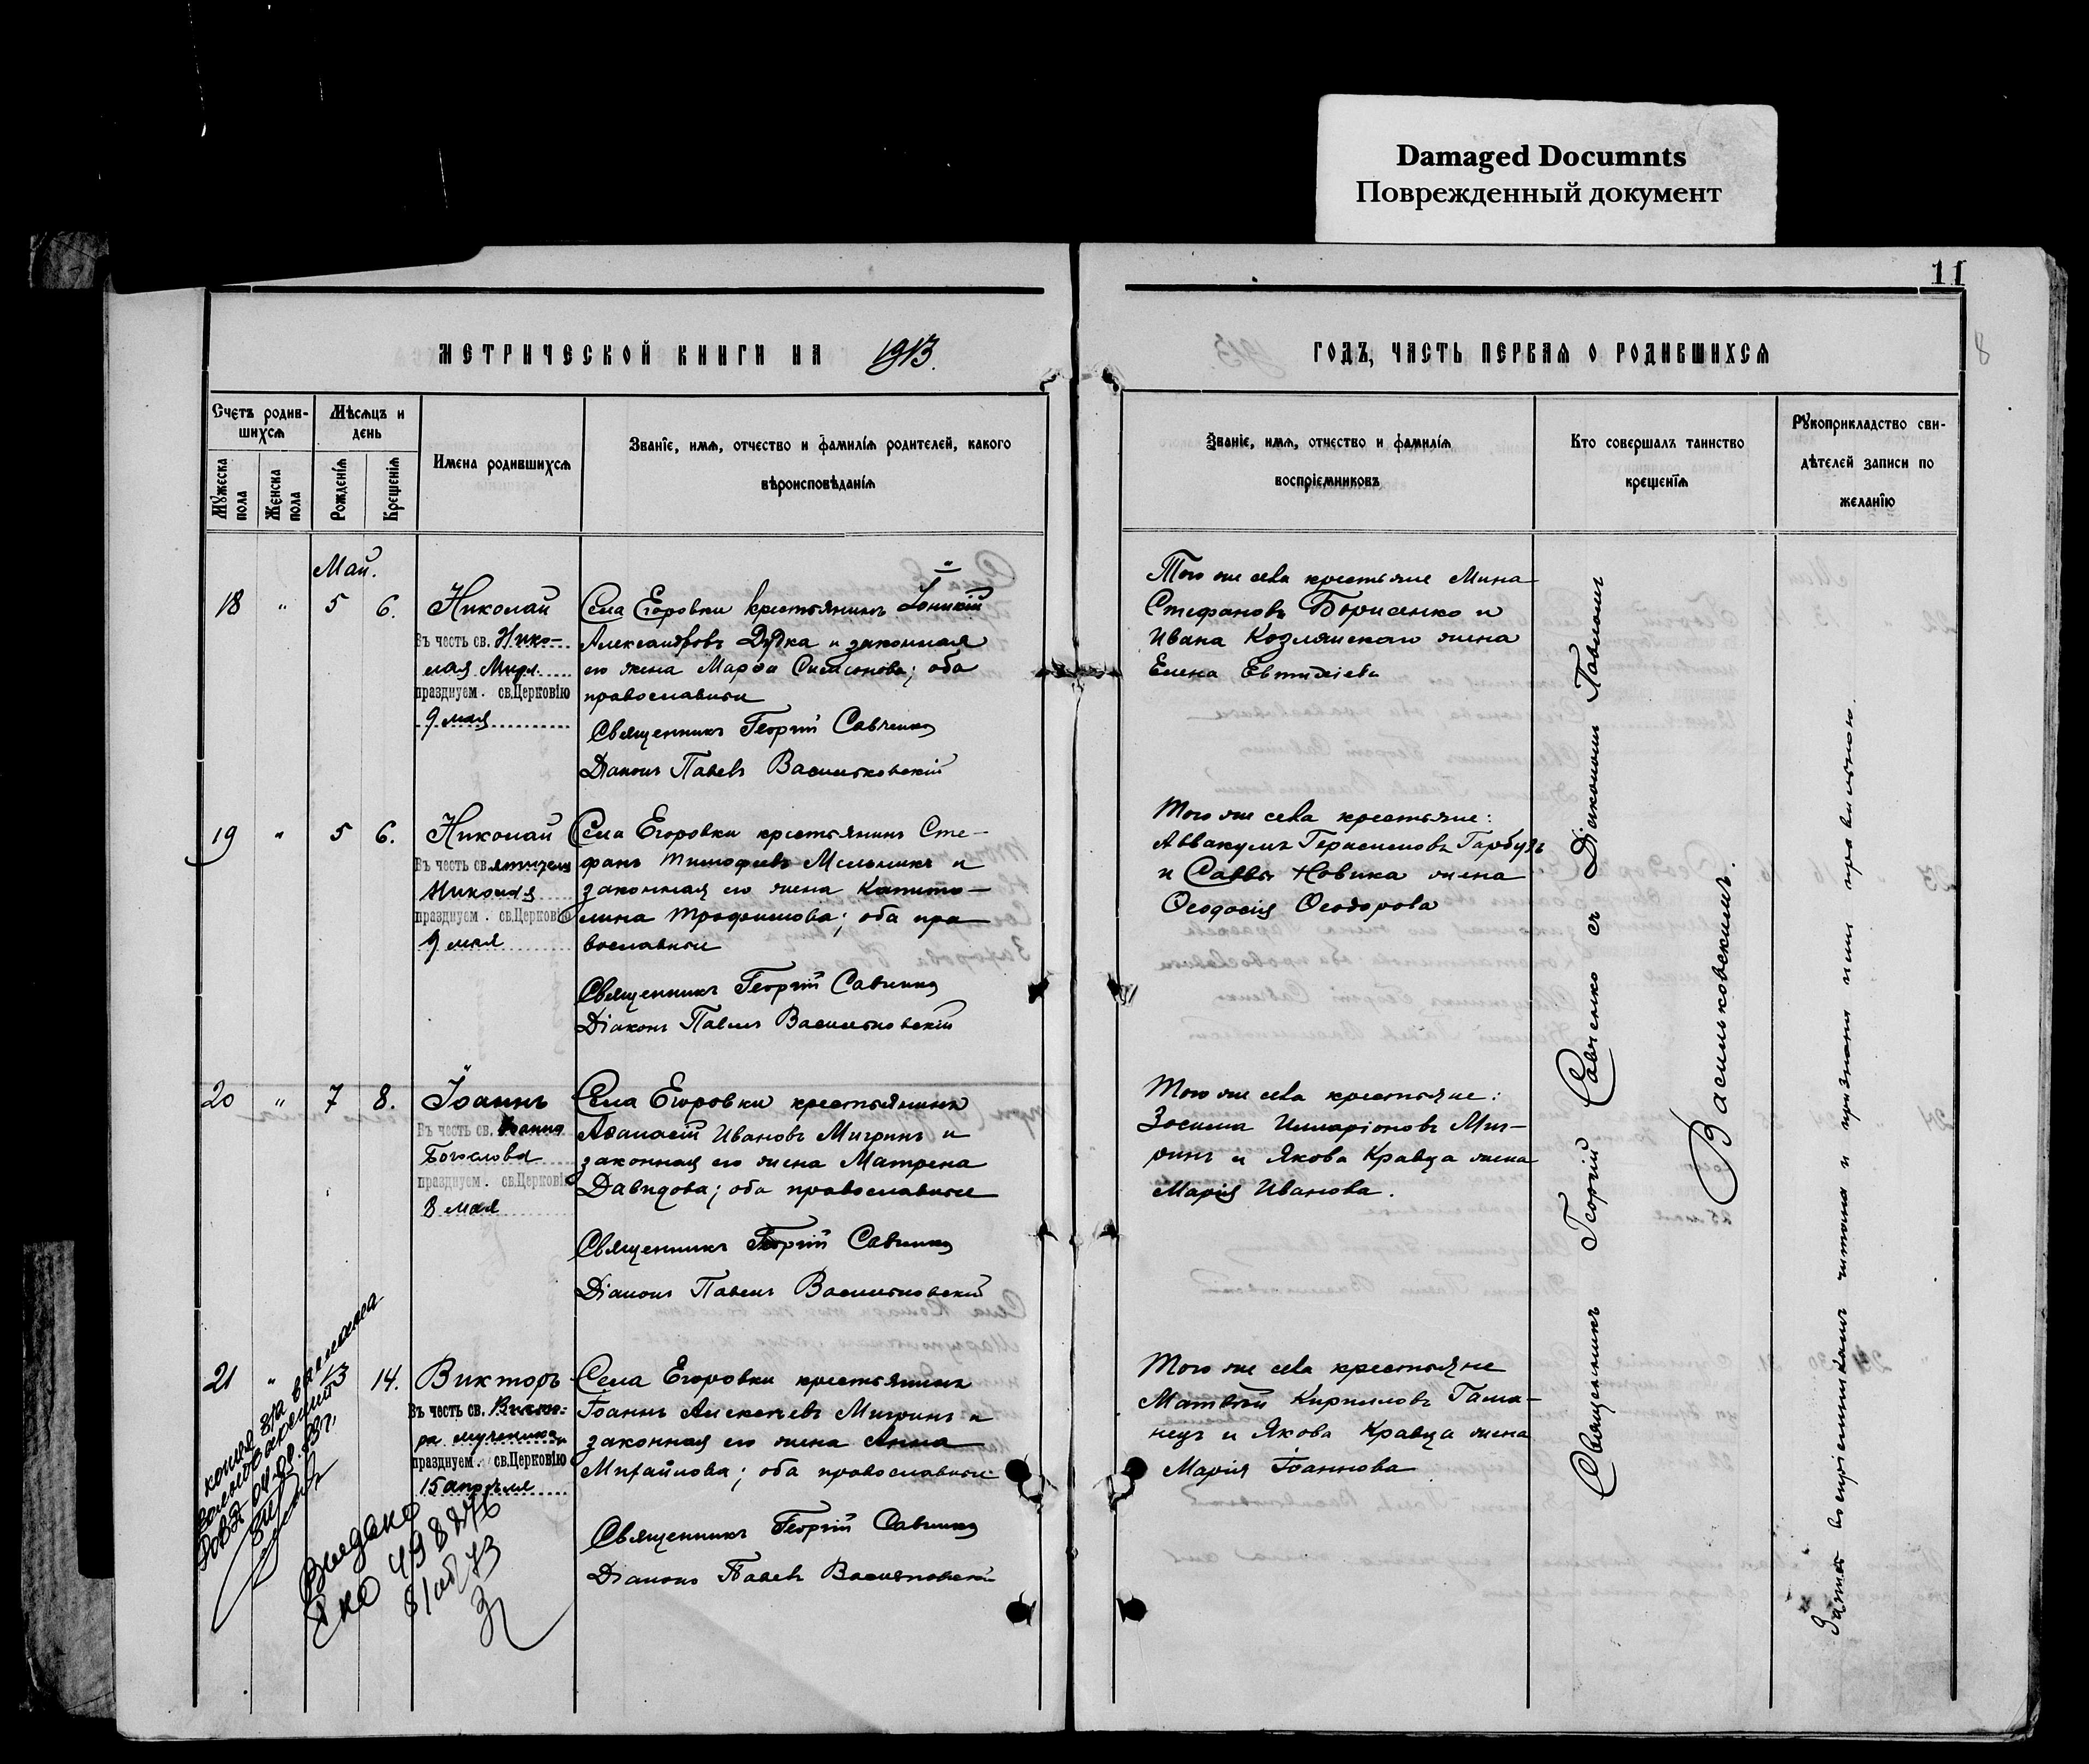 Damaged Documnts
Поврежденный документ
11
8
МЕТРИЧЕСКОЙ КНИГИ НА 1913.
ГОДЪ, ЧАСТЬ ПЕРВАЯ О РОДИВШИХСЯ
Счетъ родив-
шихся
Мужеска пола
Женска пола
Мѣсяцъ и
день
Рожденія
Крещенія
Имена родившихся
Званіе, имя, отчество и фамилія родителей, какого
вѣроисповѣданія
Званіе, имя, отчество и фамилія
воспріемниковъ
Кто совершалъ таинство
крещенія
Рукоприкладство сви-
дѣтелей записи по
желанію
Май.
18 " 5 6.
Николай
Въ честь св. Нико-
лая Мирл.
празднуем. св.Церковію
9 мая
Села Егоровки крестьянинъ Іоникій
Александровъ Дудка и законная
его жена Марѳа Симеонова; оба
православные
Священникъ Георгій Савченко
Діаконъ Павелъ Васильковскій
Того же села крестьяне Мина
Стефановъ Борисенко и
Ивана Козлянскаго жена
Елена Евтиміева
19 " 5 6.
Николай
Въ честь св.ятителя
Николая
празднуем. св.Церковію
9 мая
Села Егоровки крестьянинъ Сте-
фанъ Тимофеевъ Мельникъ и
законная его жена Капито-
лина Трофимова; оба пра-
вославные
Священникъ Георгій Савченко
Діаконъ Павелъ Васильковскій
Того же села крестьяне:
Аввакумъ Герасимовъ Гарбузъ
и Саввы Новика жена
Ѳеодосія Ѳеодорова
20 " 7 8.
Іоаннъ
Въ честь св. Іоанна
Богослова
празднуем. св.Церковію
8 мая
Села Егоровки крестьянинъ
Аѳанасій Ивановъ Мигринъ и
законная его жена Матрена
Давидова; оба православные
Священникъ Георгій Савченко
Діаконъ Павелъ Васильковскій
Того же села крестьяне:
Зосима Илларіоновъ Миг-
ринъ и Якова Кравца жена
Марія Иванова.
21 " 13 14.
Викторъ
Въ честь св. Викто-
ра мученика
празднуем. св.Церковію
15 апрѣля
Села Егоровки крестьянинъ
Іоаннъ Алексѣевъ Мигринъ и
законная его жена Анна
Михайлова; оба православные
Священникъ Георгій Савченко
Діаконъ Павелъ Васильковскій
Того же села крестьяне
Матвѣй Кирилловъ Гама-
нецъ и Якова Кравца жена
Марія Іоаннова
Выдано
Священникъ Георгій Савченко съ Діакономъ Павломъ
Васильковскимъ.
Запись воспріемникамъ читана и признана ими правильною.